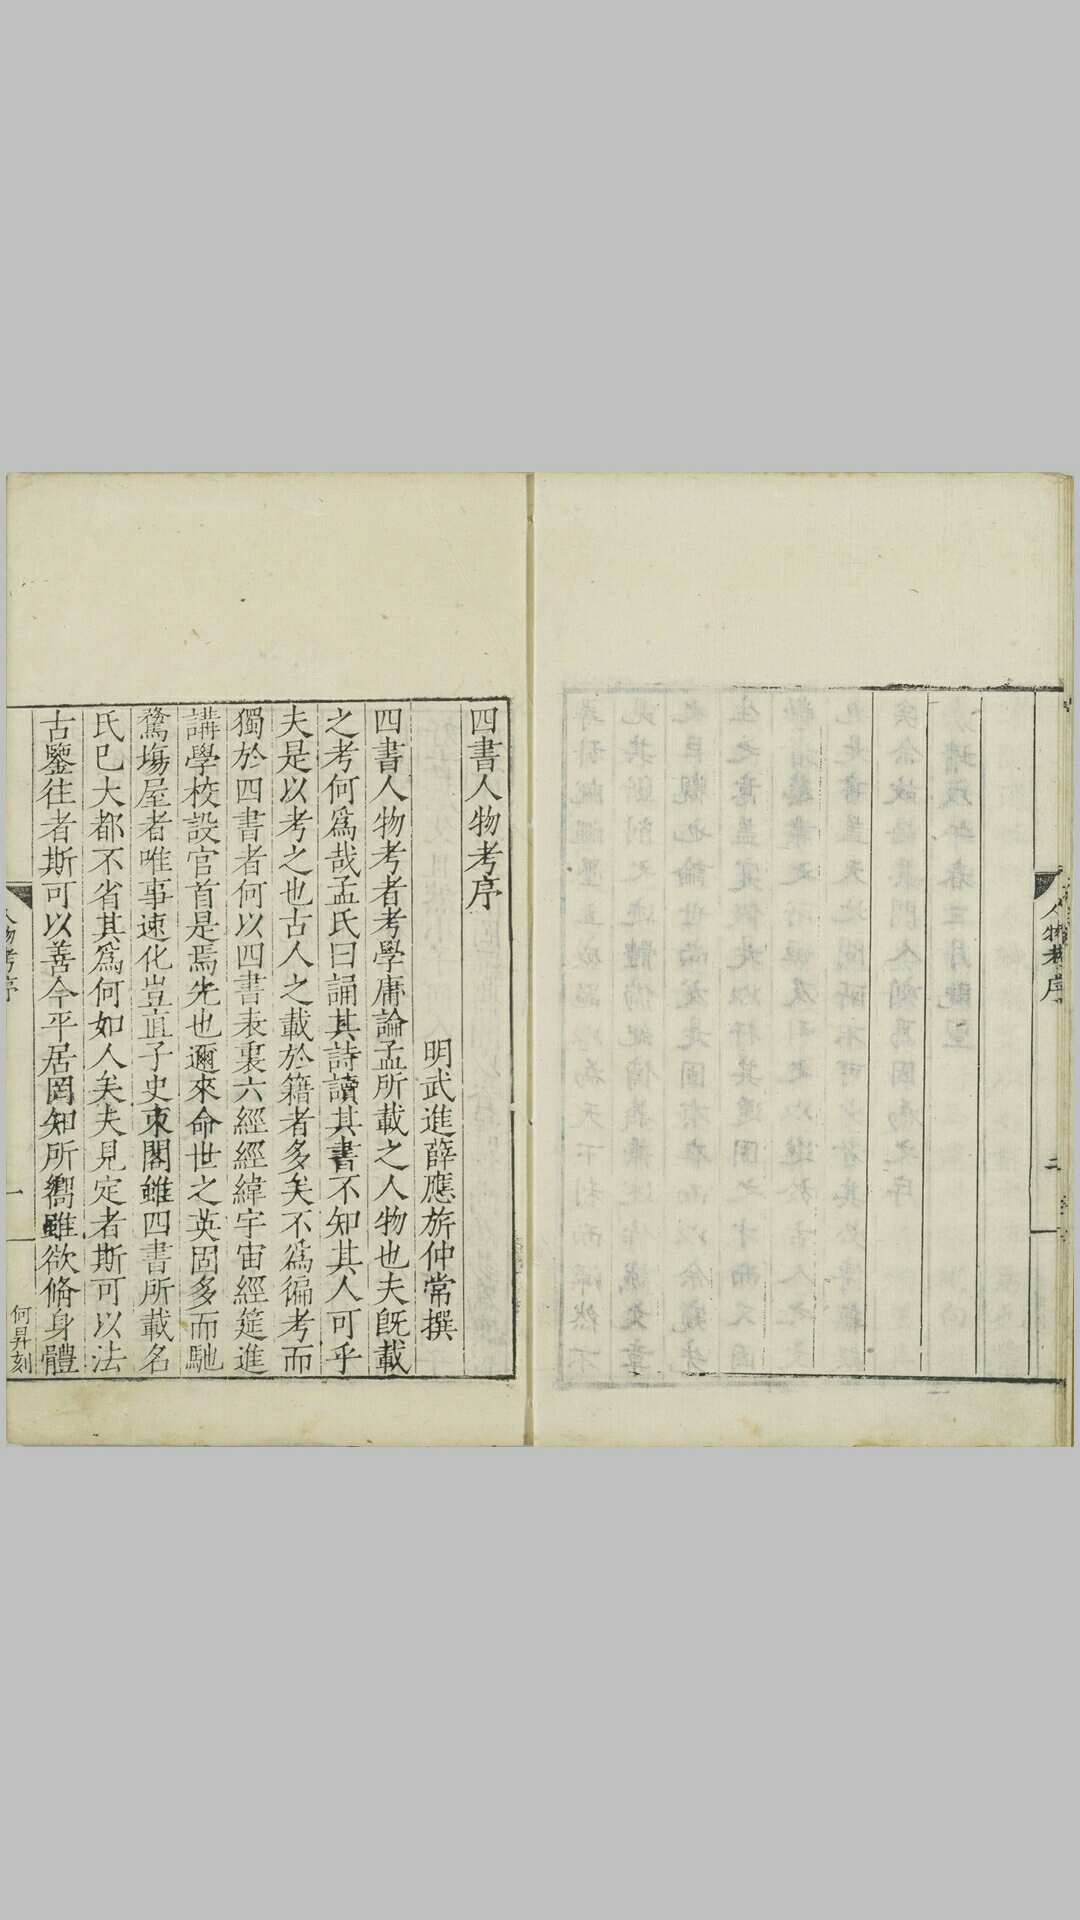 人物考序
二
四書人物考序
明武進薛應旂仲常撰
四書人物考者考學庸論孟所載之人物也夫旣載
之考何爲哉孟氏曰誦其詩讀其書不知其人可乎
夫是以考之也古人之載於籍者多矣不爲徧考而
獨於四書者何以四書表裏六經經緯宇宙經筵進
講學校設官首是焉先也邇來命世之英固多而馳
騖塲屋者唯事速化豈直子史束閣雖四書所載名
氏已大都不省其爲何如人矣夫見定者斯可以法
古鑒往者斯可以善今平居罔知所嚮雖欲脩身體
人物考序
一
何昇刻